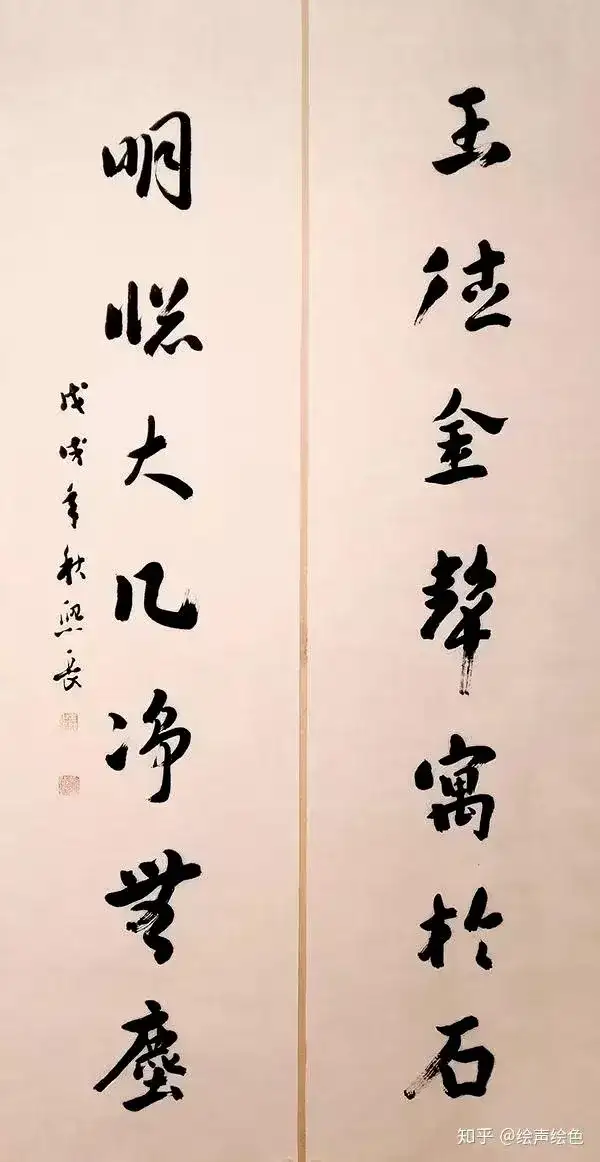 玉德金聲寓於石
明牕大几净無塵
戊戌年秋熙長
知乎 @绘声绘色